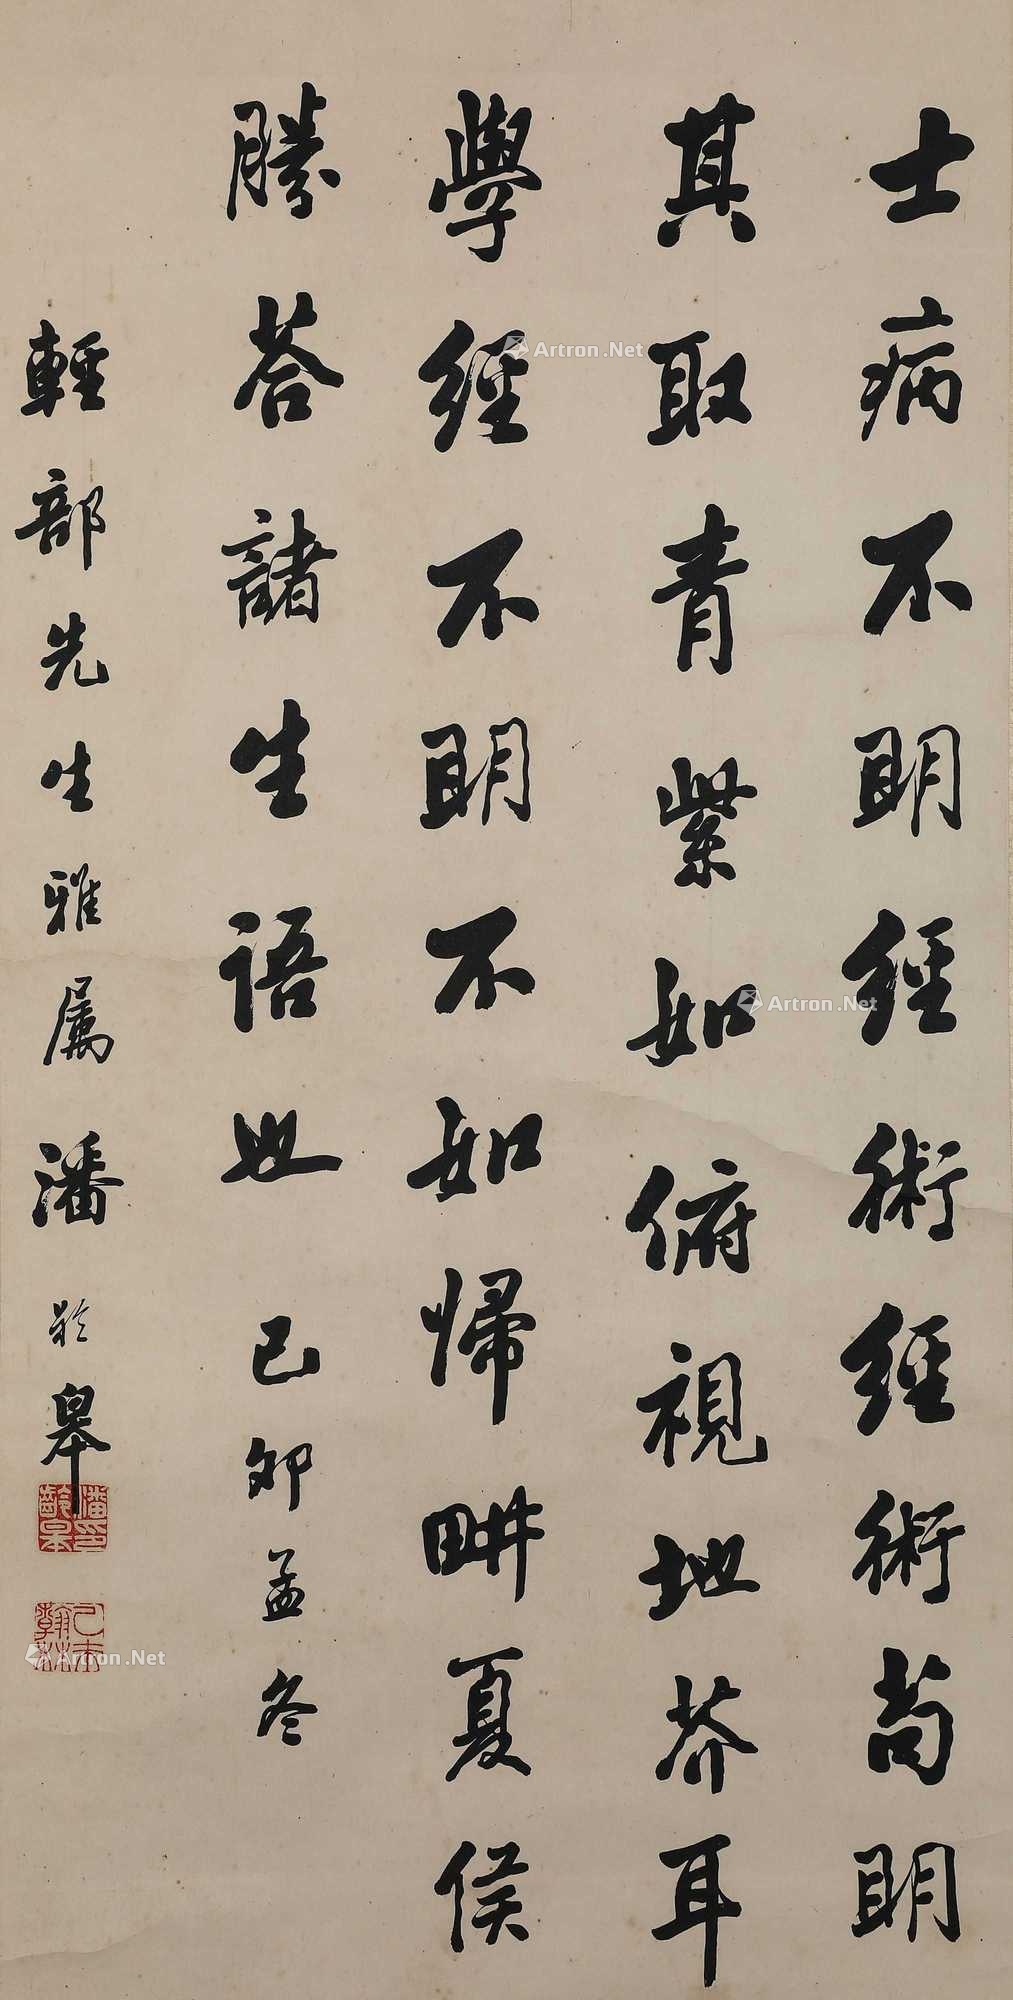 士病不明經術經術苟明
其取青紫如俯視地芥耳
學經不明不如歸畊夏侯
勝荅諸生語也 己卯孟冬
輕部先生雅属 潘齡皋
潘齡皋印
己未翰林
Artron.Net
Artron.Net
Artron.Net